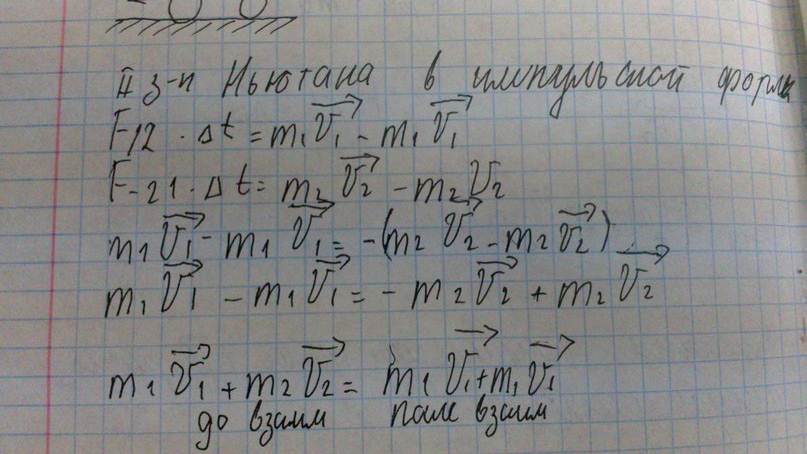 II з-н Ньютана в импульсной форме
F12 · Δt = m₁v⃗₁ - m₁v⃗₁
F-21 · Δt = m₂v⃗₂ - m₂v₂
m₁v⃗₁ - m₁v⃗₁ = -(m₂v⃗₂ - m₂v⃗₂)
m₁v⃗₁ - m₁v⃗₁ = - m₂v⃗₂ + m₂v⃗₂
m₁v⃗₁ + m₂v⃗₂ = m₁v⃗₁ + m₁v⃗₁
до взаим после взаим